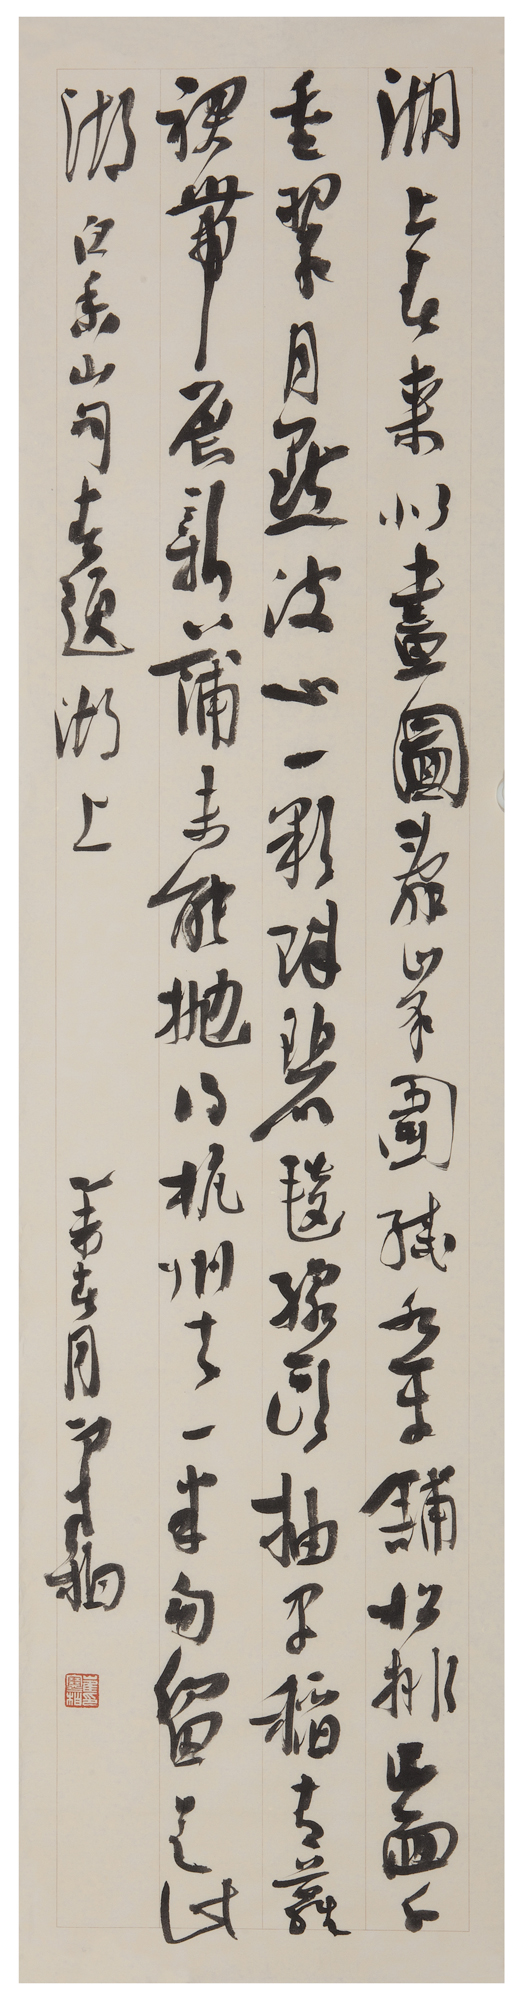 湖上春來似畫圖亂峰圍繞水平鋪松排山面千
重翠月點波心一顆珠碧毯線頭抽早稻青蘿
裙帶展新蒲未能拋得杭州去一半勾留是此
湖 白香山句春題湖上 乙未春月寒柏